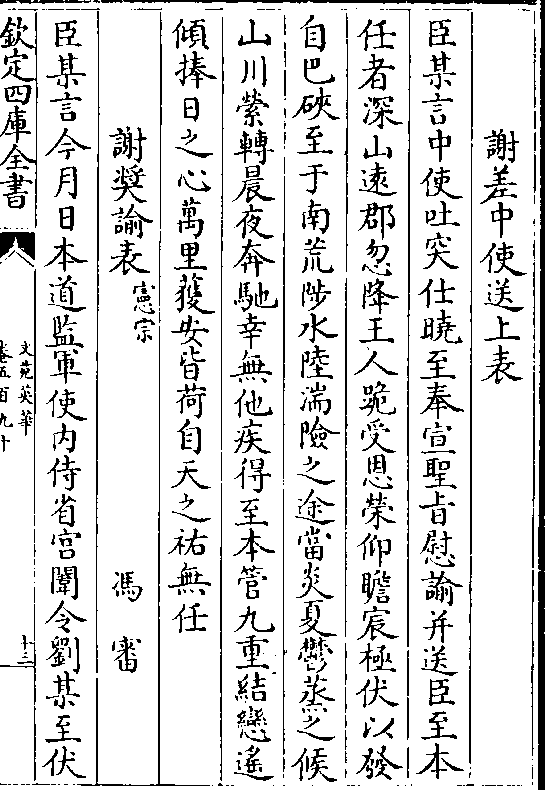 謝差中使送上表
臣某言中使吐突仕曉至奉宣聖旨慰諭并送臣至本
任者深山遠郡忽降王人跪受恩榮仰瞻宸極伏以發
自巴硤至于南荒陟水陸湍險之途當炎夏鬱蒸之候
山川縈轉晨夜奔馳幸無他疾得至本管九重結戀遙
傾捧日之心萬里獲安皆荷自天之祐無任
謝奬諭表憲宗 馮審
臣某言今月日本道監軍使内侍省宫闈令劉某至伏
欽定四庫全書
文苑英華
卷五百九十
十三